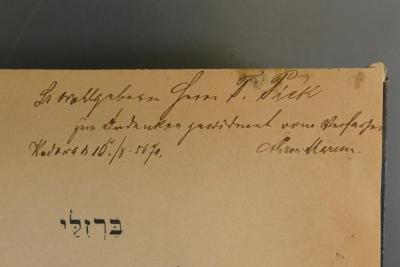 Sr Wollgeboren Herrn T. Pick
zum Andenken gewidmet vom Verfasser
10/ 5670. Aron Marcus.
ברזלי